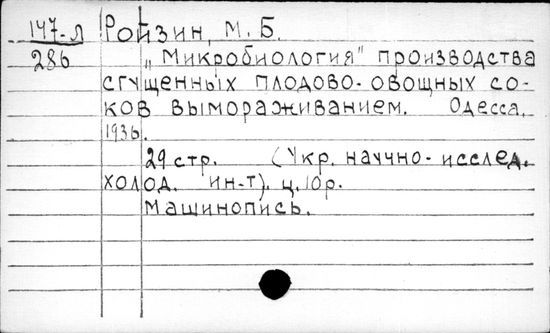 147-л Ройзин, М. Б.
286 „Микробиология" производства
сгущенных плодово-овощных со-
ков вымораживанием. Одесса,
1936.
29 стр. (Укр. научно-исслед.
холод. ин-т). ц. 10р.
Машинопись.